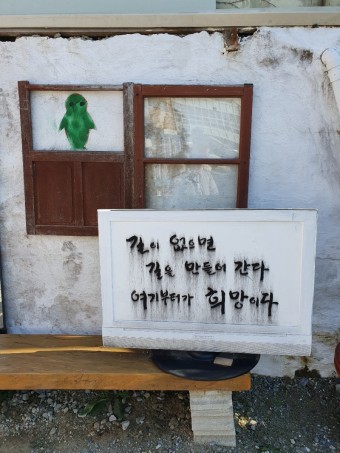 길이 없으면
길을 만들어 간다
여기부터가 희망이다